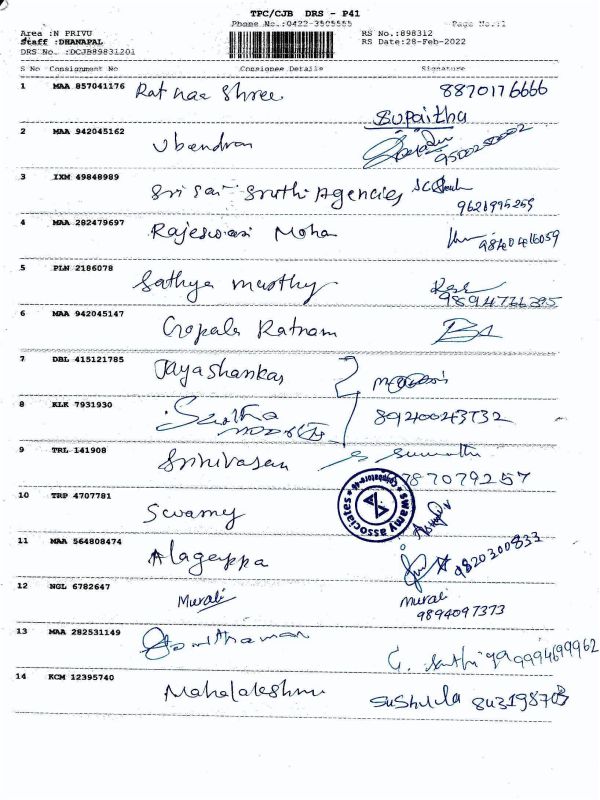 TPC/CJB DRS - P41
Phone No.:0422-3505555 Page No.:1
Area :N PRIVU RS No.:898312
Staff :DHANAPAL RS Date:28-Feb-2022
DRS No. :DCJB89831201
S No Consignment No Consignee Details Signature
1 MAA 857041176 Ratnaa Shree 8870176666
Supaitha
2 MAA 942045162 Ubendran 9500250002
3 IXM 49848989 Sri Sai Sruthi Agencies
9621975259
4 MAA 282479697 Rajeswari Moha 9840416059
5 PLN 2186078 Sathya Murthy
6 MAA 942045147 Gopala Ratnam
7 DBL 415121785 Jayashankar
8 KLK 7931930 8940043732
9 TRL 141908 Srinivasan S Sumathi
787079257
10 TRP 4707781 Swamy
swamy associates
11 MAA 564808474 Alagappa 9820300833
12 NGL 6782647 Murali Murali
9894097373
13 MAA 282531149 G. 9994699962
14 KCM 12395740 Mahalakshmi Sushila 843198703